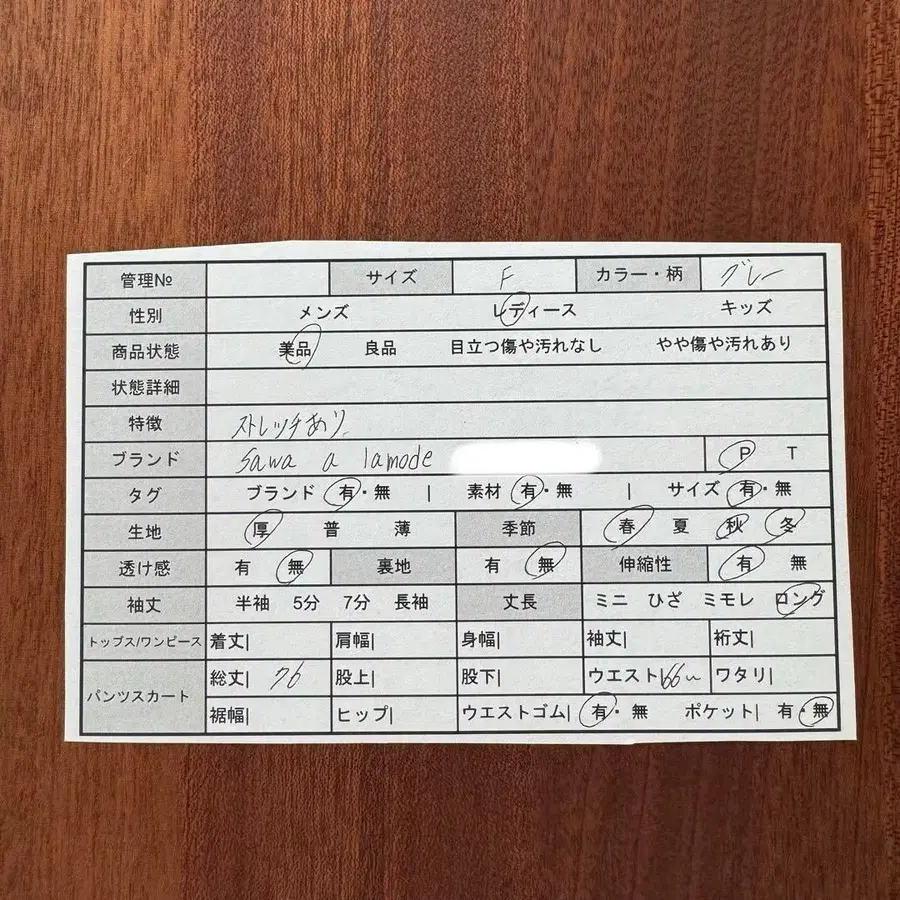 管理№ サイズ F カラー・柄 グレー
性別 メンズ レディース キッズ
商品状態 美品 良品 目立つ傷や汚れなし やや傷や汚れあり
状態詳細
特徴 ストレッチあり
ブランド Sawa a lamode P T
タグ ブランド 有・無 | 素材 有・無 | サイズ 有・無
生地 厚 普 薄 季節 春 夏 秋 冬
透け感 有 無 裏地 有 無 伸縮性 有 無
袖丈 半袖 5分 7分 長袖 丈長 ミニ ひざ ミモレ ロング
トップス/ワンピース 着丈| 肩幅| 身幅| 袖丈| 裄丈|
パンツスカート 総丈| 76 股上| 股下| ウエスト| 66〜 ワタリ|
裾幅| ヒップ| ウエストゴム| 有・無 ポケット| 有・無